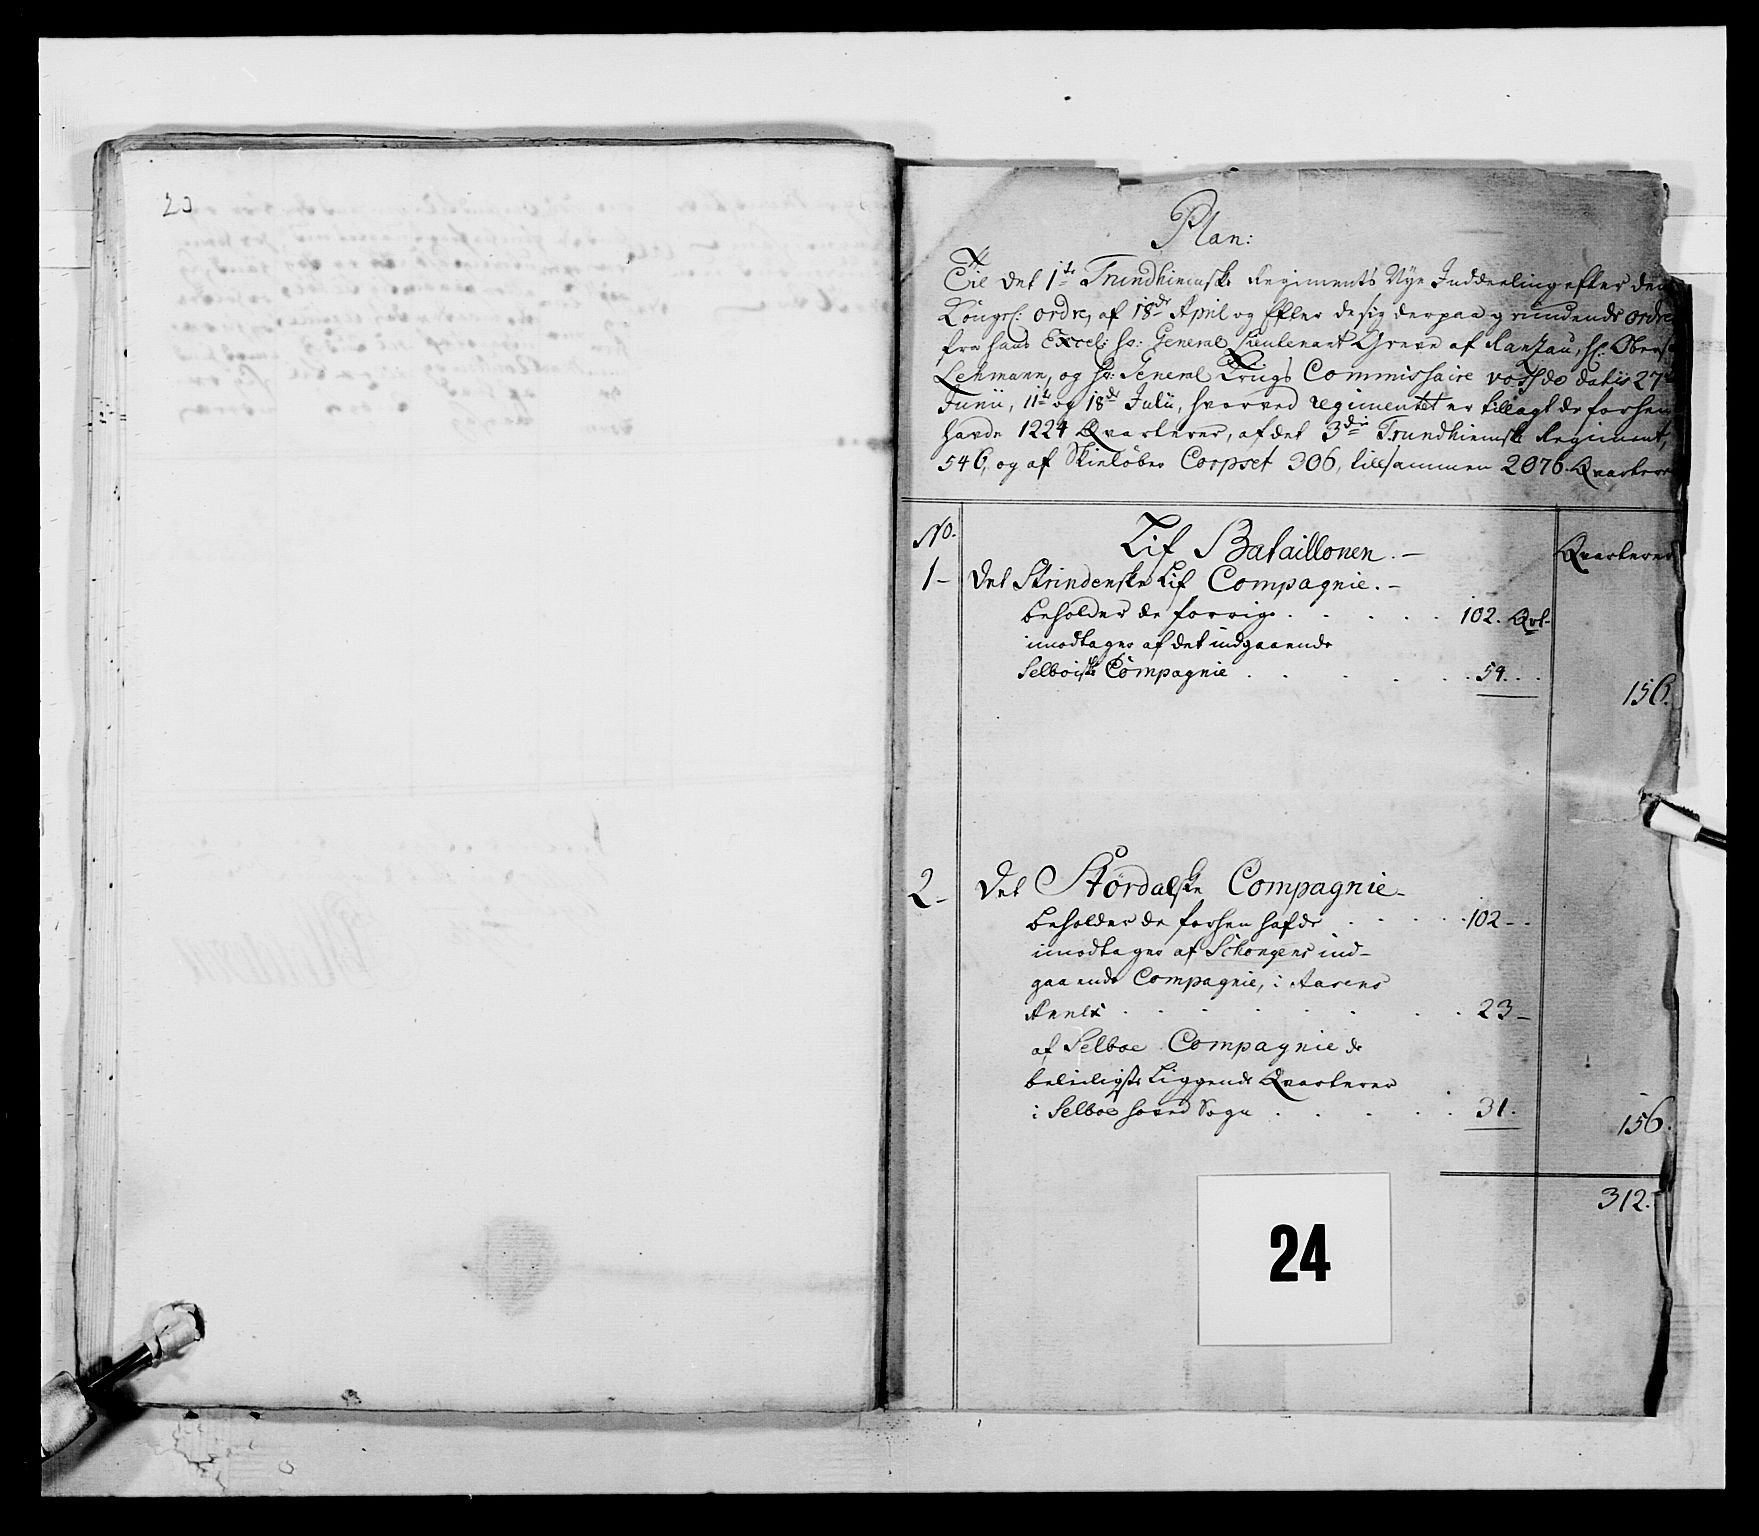 20
Plan:
Til det 1ste Trundhiemske Regiments Nye Inddeeling efter den
Kongel: ordre, af 18de April og Efter de sig derpaa grundende ordre
fra hans Excel: hr: General Lieutenant Greve af Ranzau, hr: Oberst
Lehmann, og hr: General Krigs Commissaire datis 27de
Junii, 11te og 18de Julii, hvorved regimentet er tillagt de forhen
havde 1224 Qvarterer, af det 3die Trundhiemske Regiment,
546, og af Skielöber Corpset 306, tillsammen 2076 Qvarterer
No.
Lif Bataillonen. –
Qvarterer
1 – Det Strindenske Lif Compagnie. –
beholder de forrige . . . . . 102. Qvt.
imodtager af det indgaaende
Selboiske Compagnie . . . . . 54. . .
156.
2 – Det Stördalske Compagnie –
beholder de forhen hafde . . . . 102 – .
imodtager af Schongens ind-
gaaende Compagnie, i Aasens
Annex . . . . . . . 23 –
af Selboe Compagnie de
beleiligste Liggende Qvarterer
i Selboe hoved Sogn . . . . . 31.
156.
312.
24